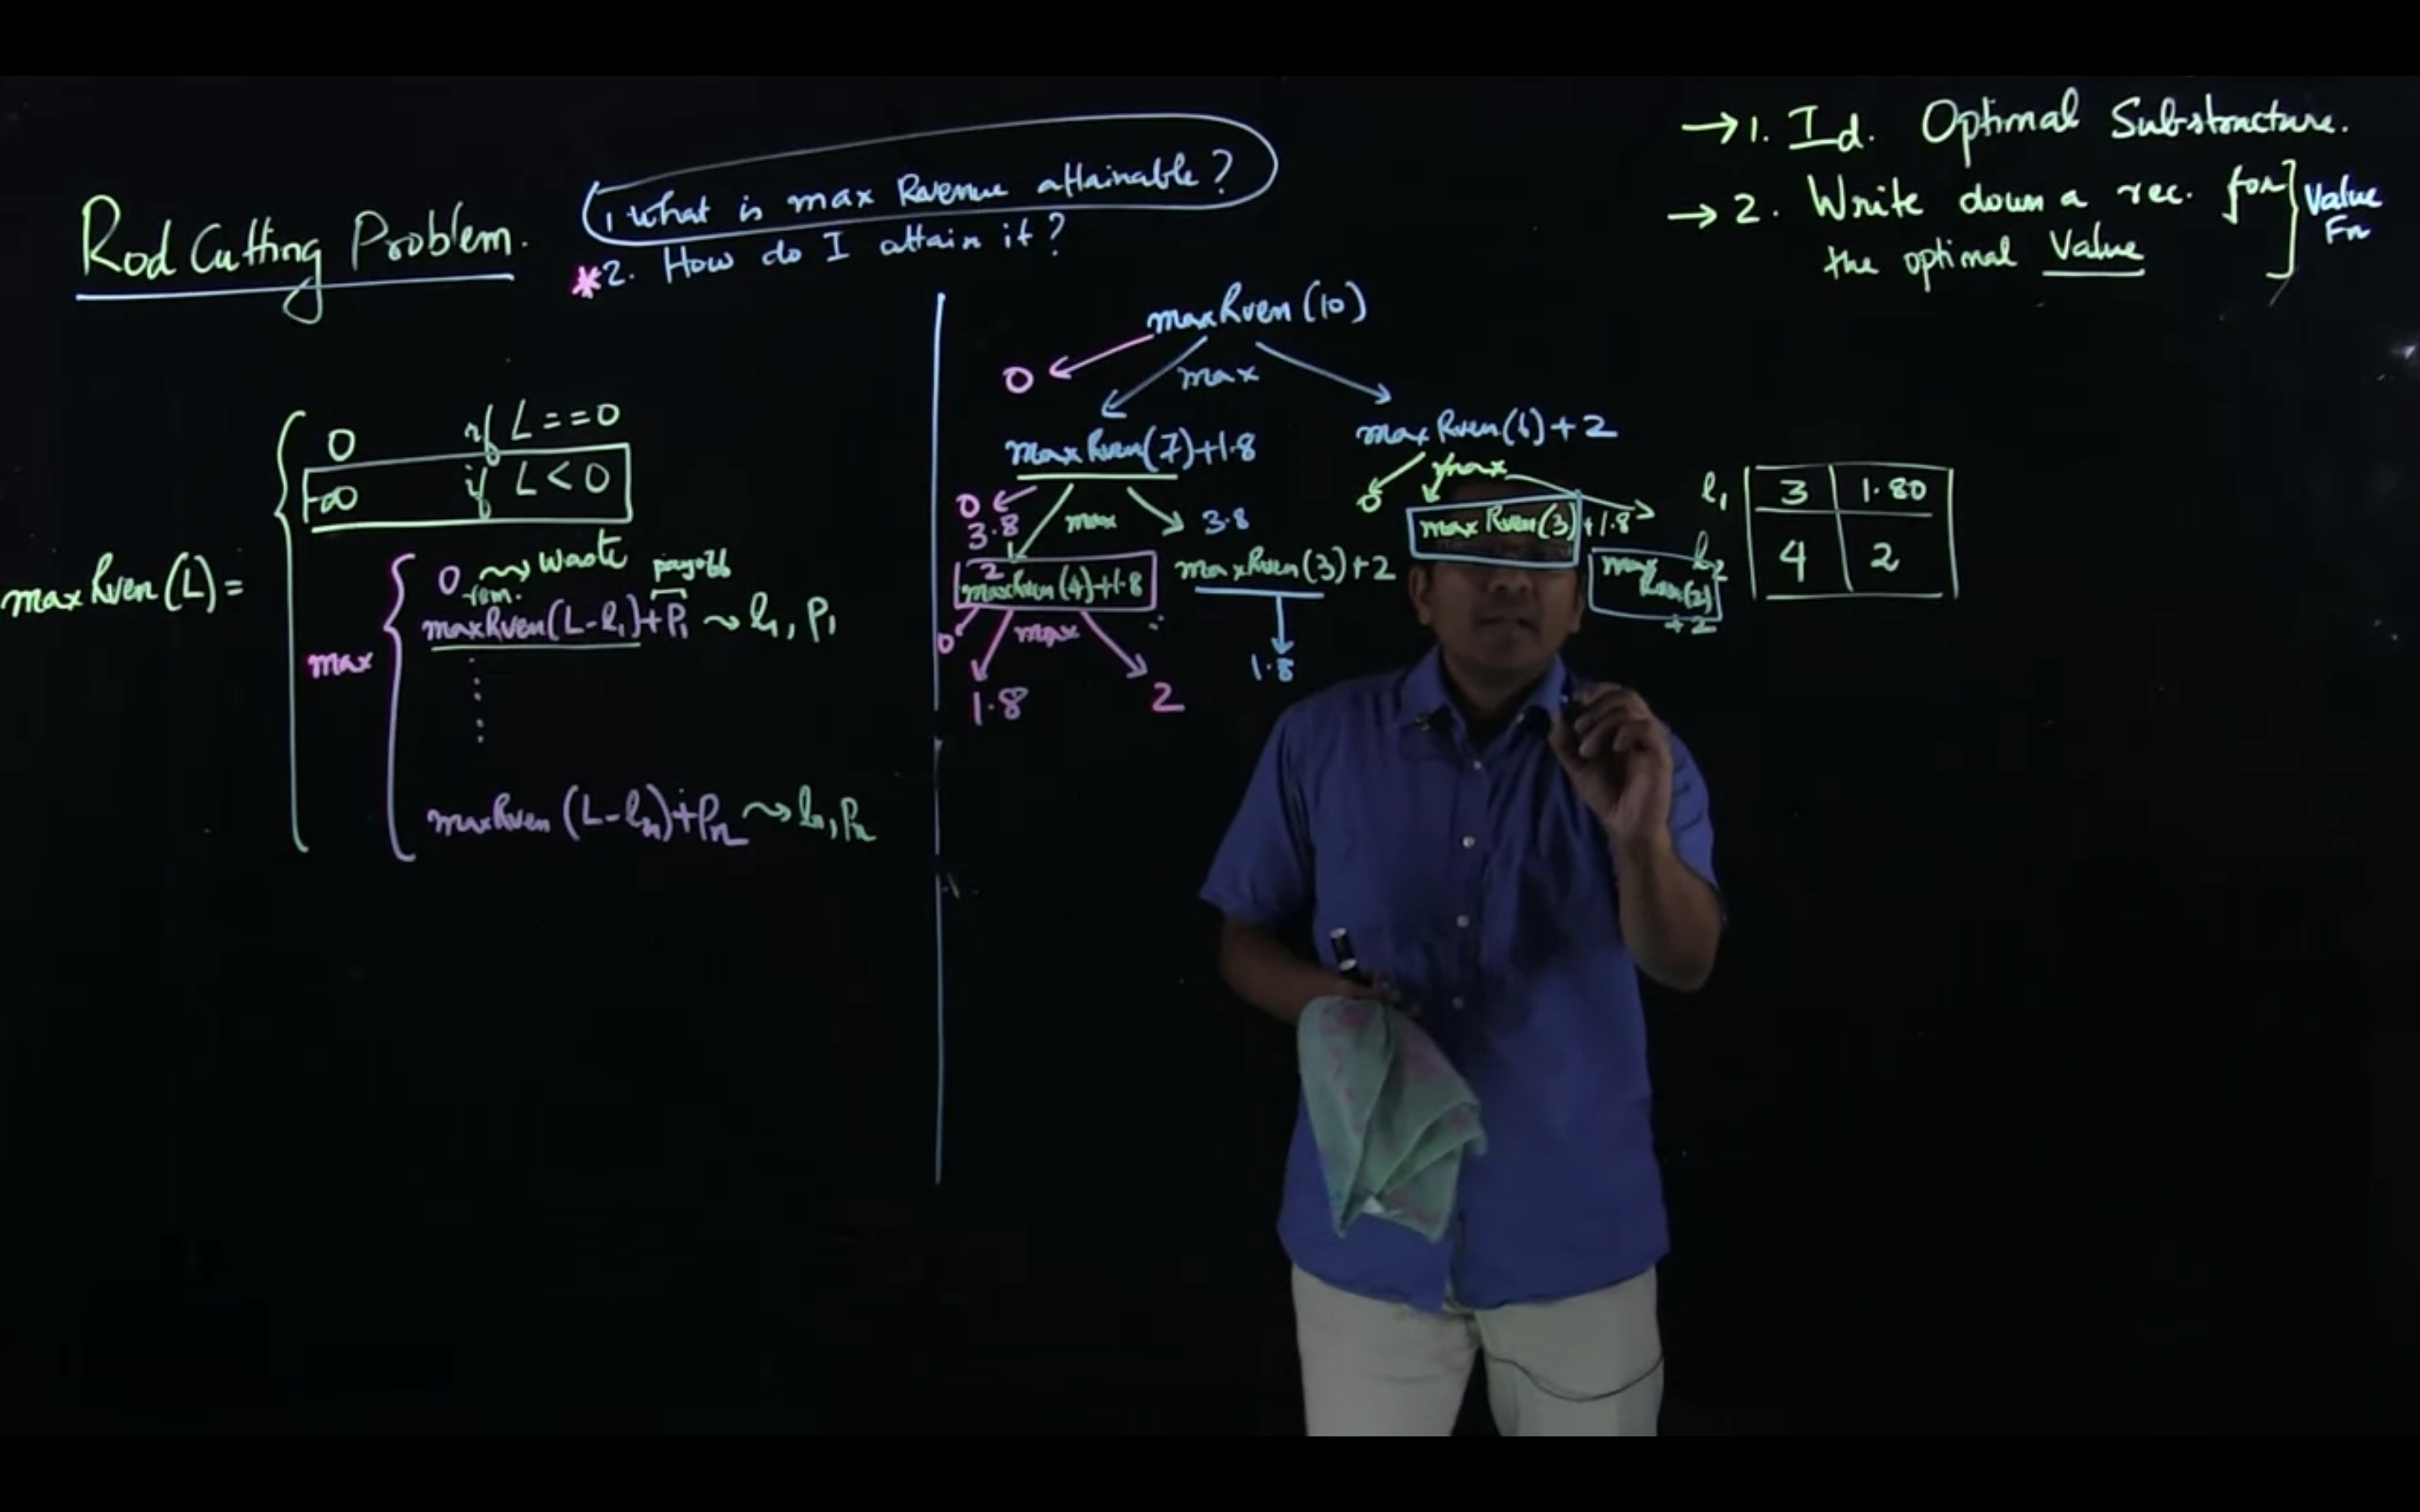 Rod Cutting Problem.
1 What is max Revenue attainable?
*2. How do I attain it?
→ 1. Id. Optimal Substructure.
→ 2. Write down a rec. for
the optimal Value
Value
Fn
maxRven(L) =
0 if L==0
-∞ if L<0
max
0 ~> waste
rem. payoff
maxRven(L-l₁)+P₁ ~> l₁, P₁
maxRven (L-lₙ)+Pₙ ~> lₙ, Pₙ
maxRven(10)
0 max
maxRven(7)+1.8
maxRven(6)+2
0 max 3.8
3.8
2
maxRven(4)+1.8
maxRven(3)+2
0 max
1.8 2
1.8
0 max
maxRven(3)+1.8
max
Rven(2)
+2
l₁ 3 1.80
l₂ 4 2